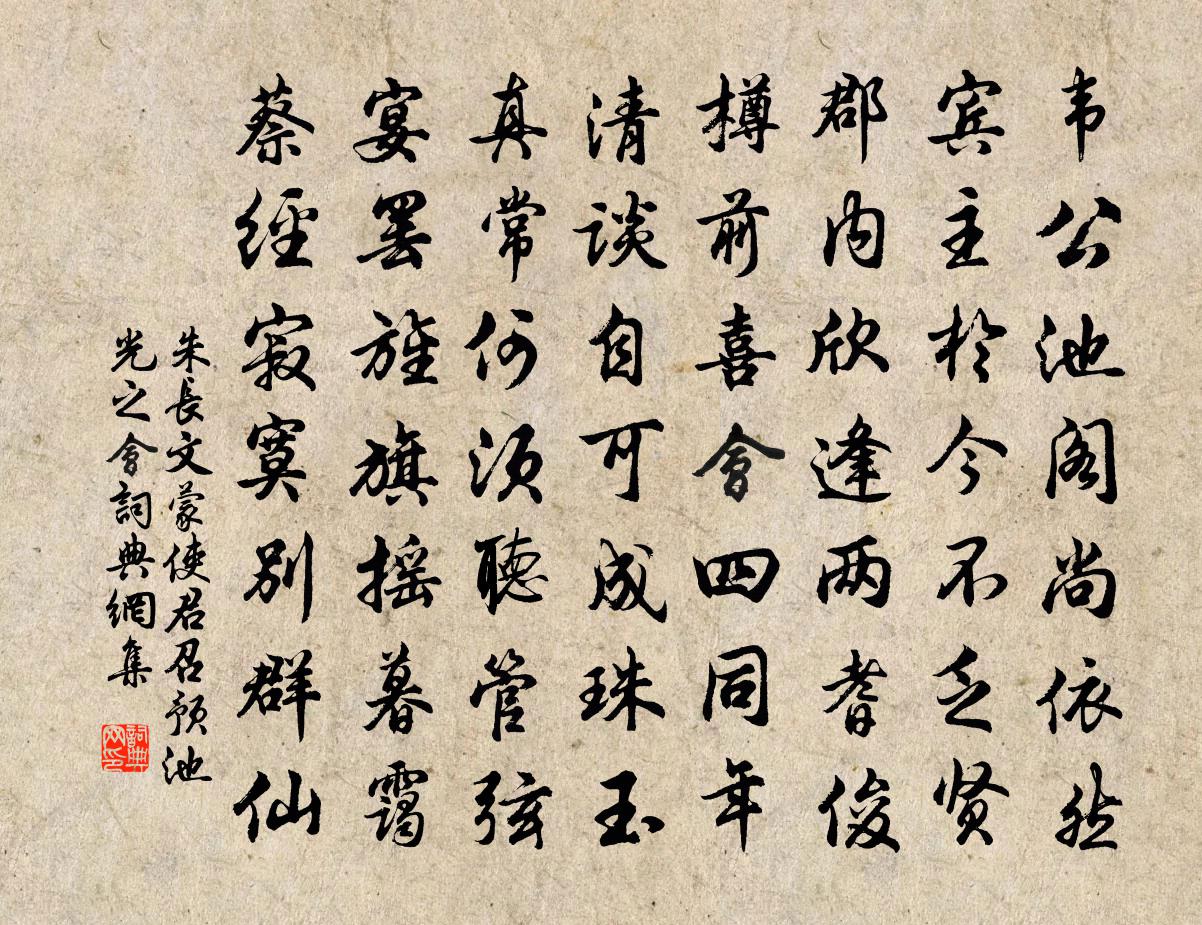 韦公池阁尚依然
宾主於今不乏贤
郡内欣逢两耆俊
樽前喜會四同年
清谈自可成珠玉
真常何须聽管弦
宴罢旌旗摇暮霭
蔡經寂寞别群仙
朱長文蒙使君召预池
光之會詞典網集
詞典网印